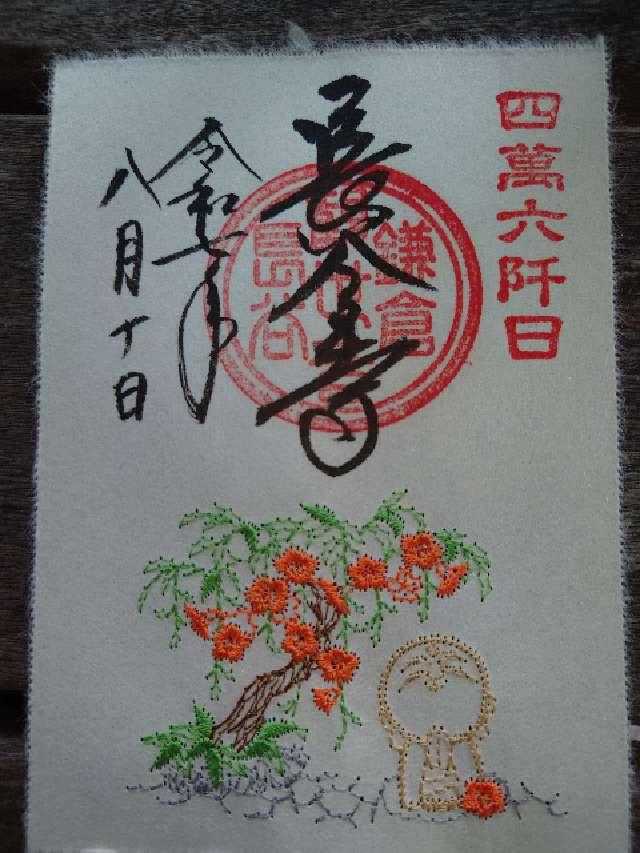 四萬六阡日
鎌倉
長谷
長谷寺
令和七年
八月十日